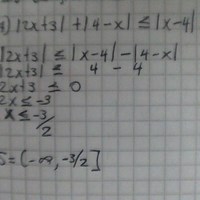 a) |2x+3| + |4-x| ≤ |x-4|
|2x+3| ≤ |x-4| - |4-x|
|2x+3| ≤ 4 - 4
2x+3 ≤ 0
2x ≤ -3
x ≤ -3/2
S = (-∞, -3/2]